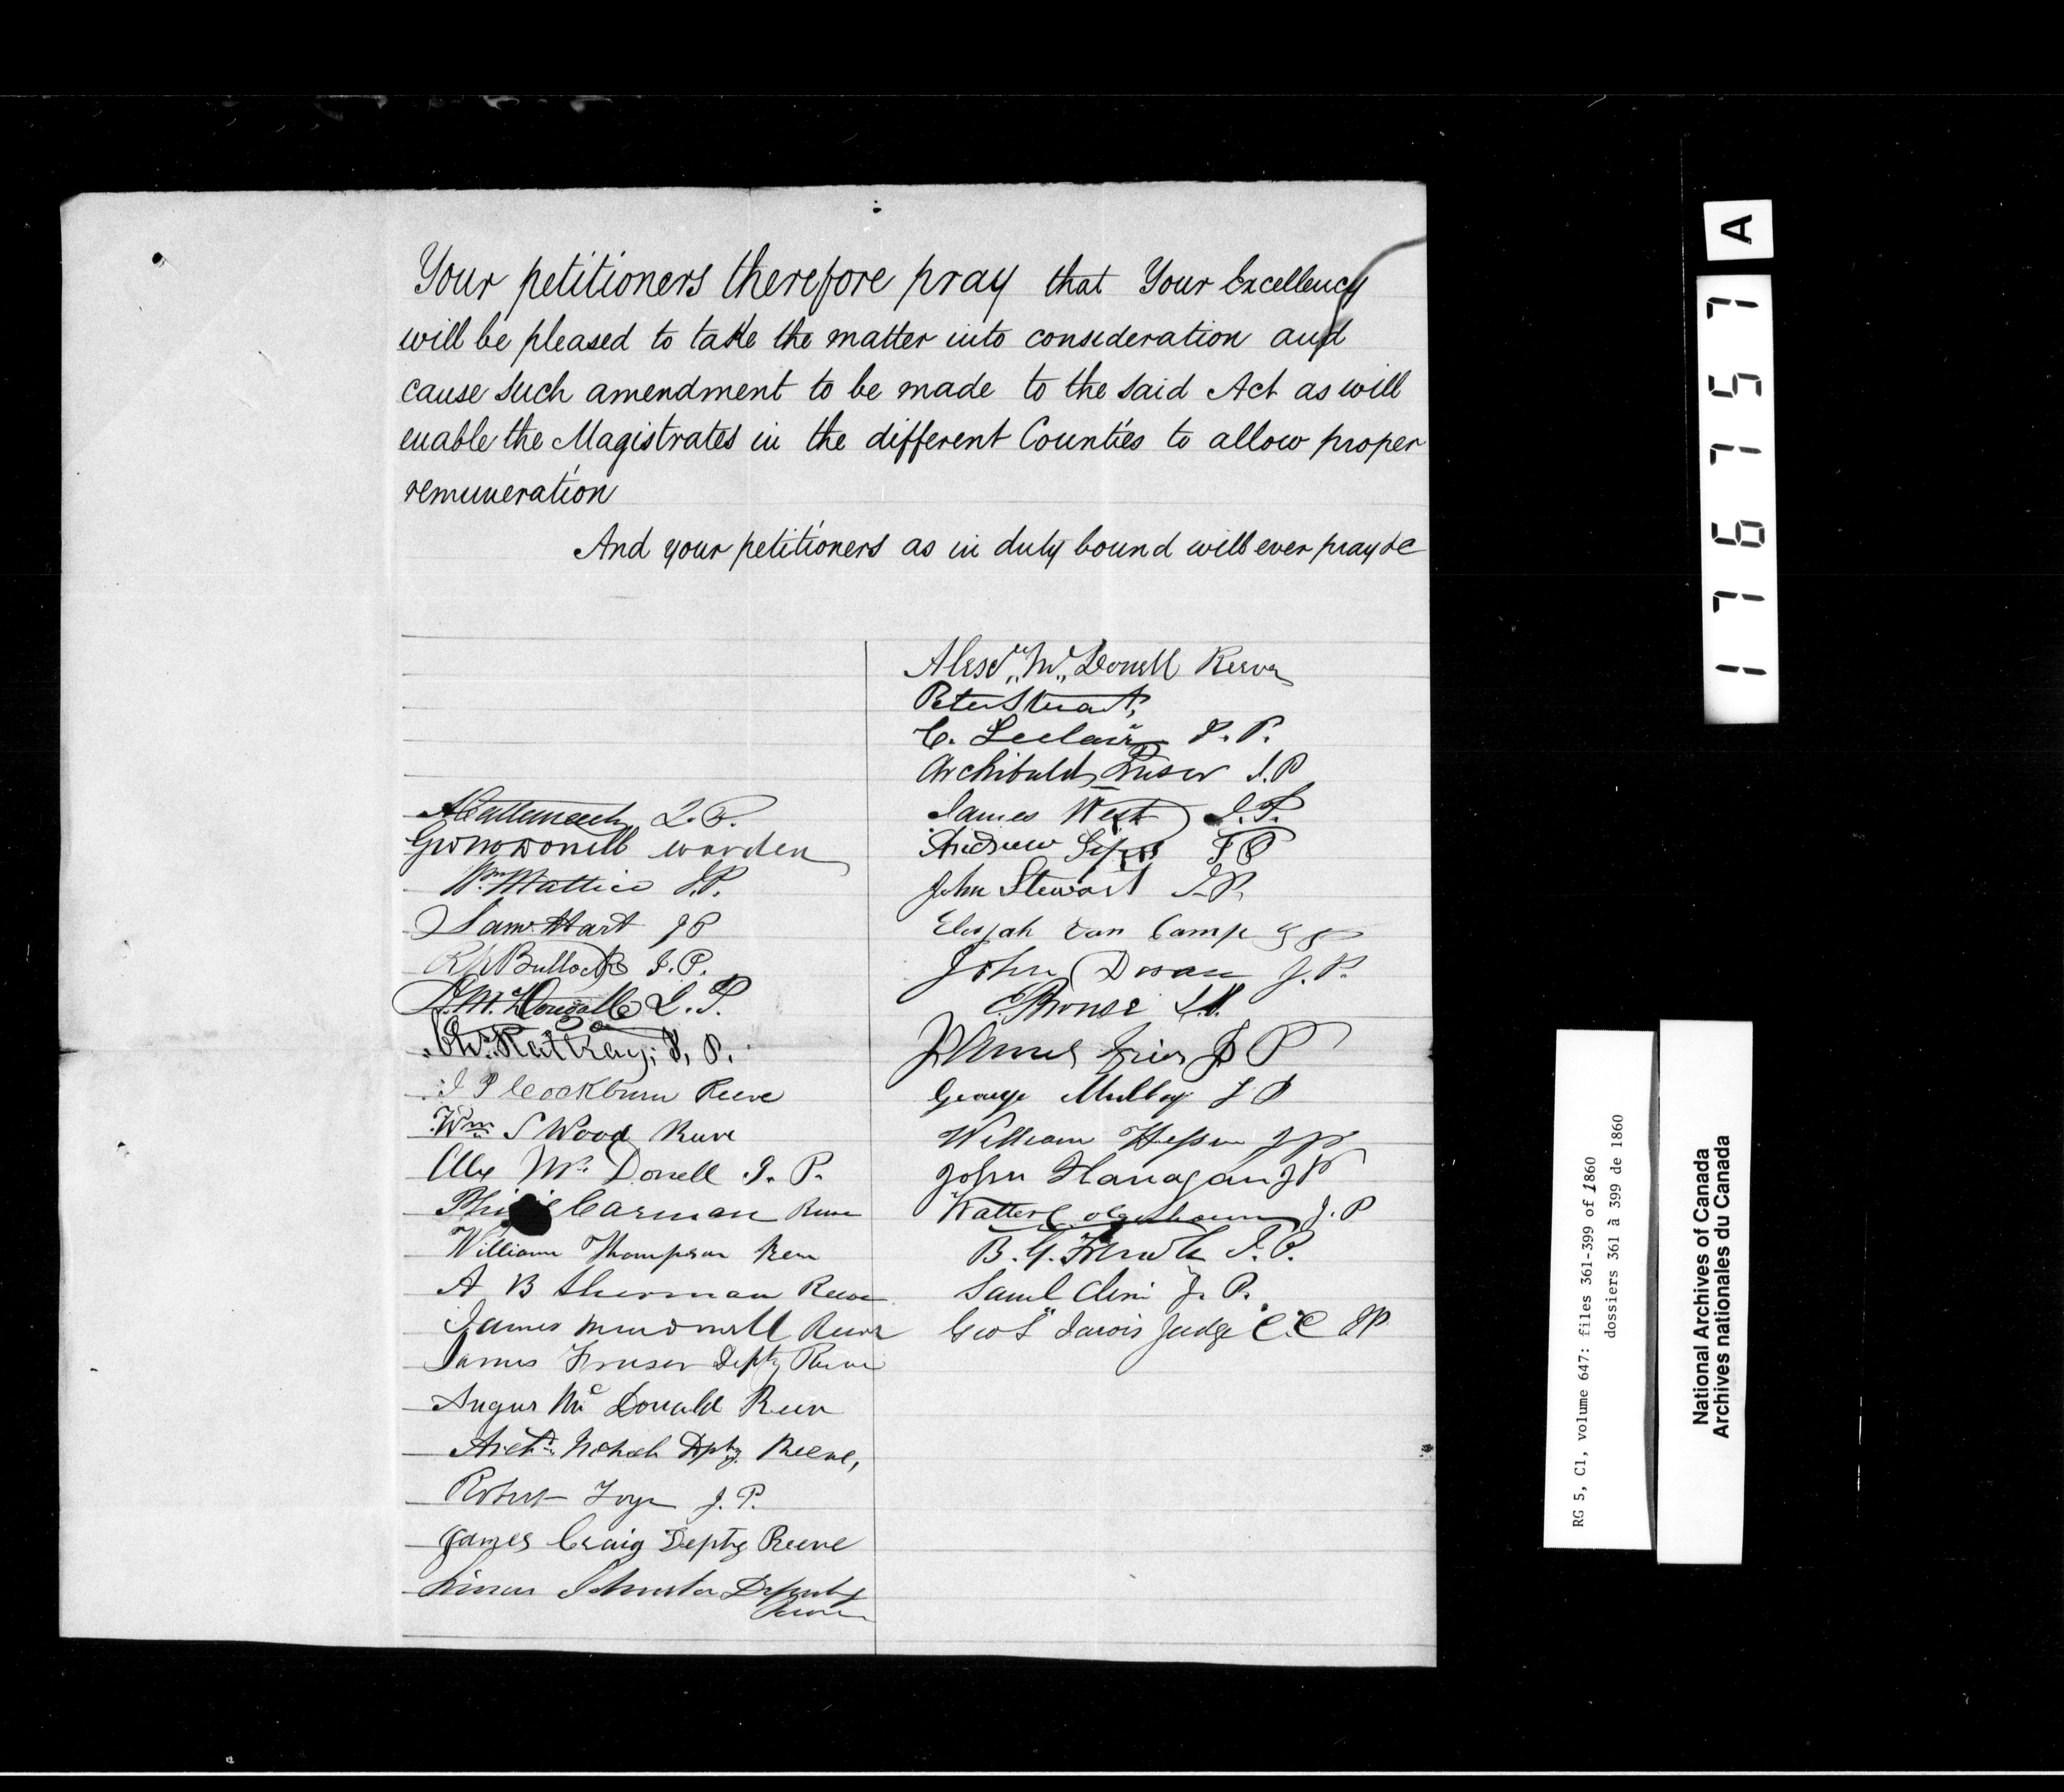 Your petitioners therefore pray that Your Excellency
will be pleased to take the matter into consideration and
cause such amendment to be made to the said Act as will
enable the Magistrates in the different Counties to allow proper
remuneration
And your petitioners as in duty bound will ever pray &c
J.P.
warden
Wm Mattice J.P.
Saml Hart JP
Bullock J.P.
McDougall J.P.
Chs. Rattray, J.P.
J P Cockburn Reeve
Wm S Wood Reeve
Alex Mc Donell J. P.
Carman Reeve
William Thompson Reeve
A B Sherman Reeve
James Reeve
James Fraser Depty Reeve
Angus Mc Donald Reeve
Depty Reeve,
Robert J. P.
James Craig Depty Reeve
Deputy
Reeve
Alexr Mc Donell Reeve
Peter Stuart,
C. Leclair J. P.
Archibald Fraser J.P
James West J.P.
Andrew J P
John Stewart J.P.
Elijah Van Camp J P
John Doran J. P.
J.P.
James Grier J P
George Mulloy J P
William J P
John Flanagan J P
Walter J. P
B. G. French J. P.
Saml J. P.
Geo S Jarvis Judge C.C. JP
A
176757
RG 5, C1, volume 647: files 361-399 of 1860
dossiers 361 à 399 de 1860
National Archives of Canada
Archives nationales du Canada